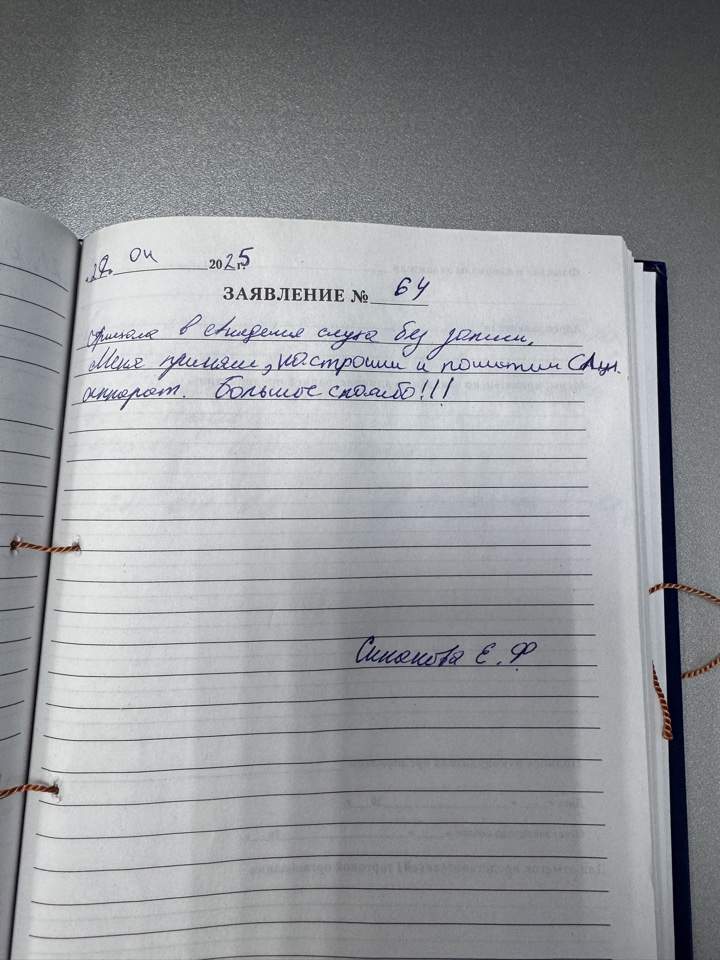 «29» Ок 2025 г.
ЗАЯВЛЕНИЕ № 64
Приехала в Академия слуха без записи,
Меня приняли, настроили и почистили Слух.
аппарат. Большое спасибо!!!
Синакова Е. Ф